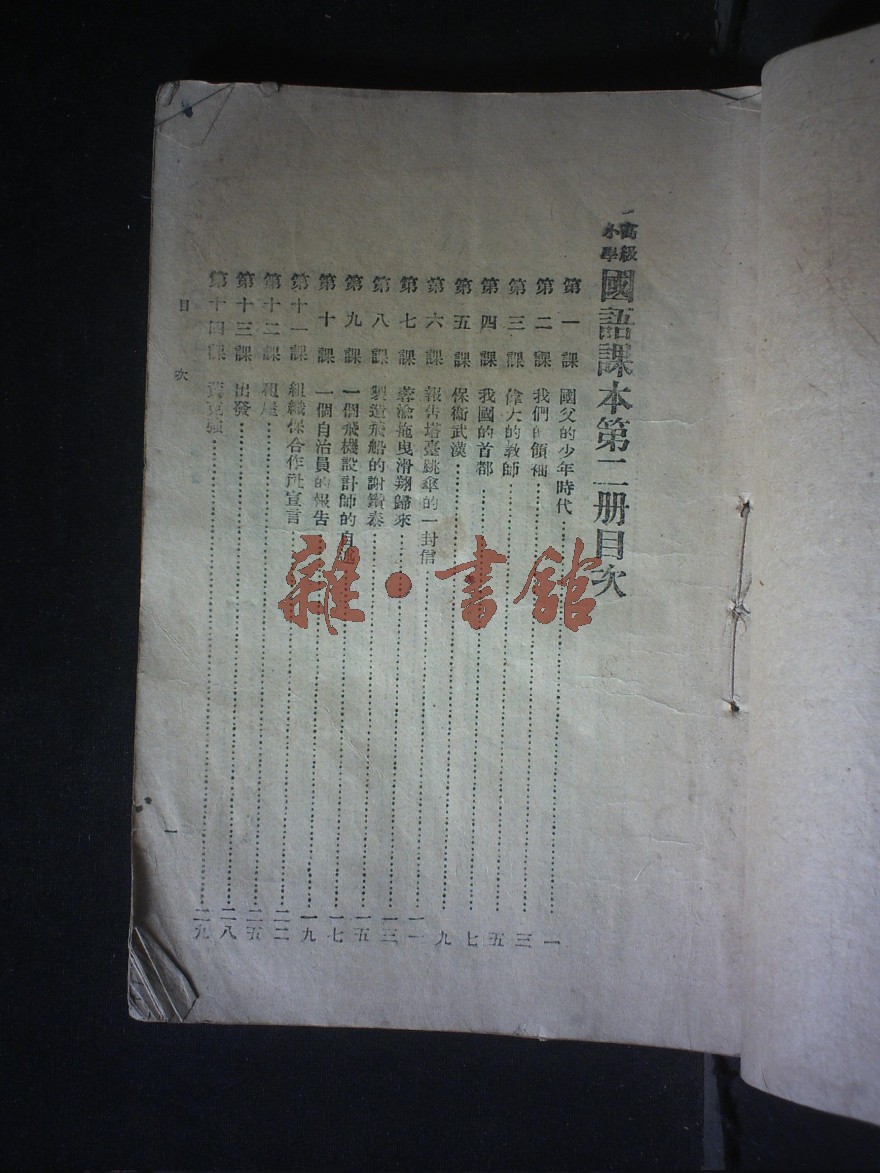 高級
小學
國語課本第二册目次
第一課 國父的少年時代 一
第二課 我們的領袖 三
第三課 偉大的教師 五
第四課 我國的首都 七
第五課 保衛武漢 九
第六課 報告塔臺跳傘的一封信 一一
第七課 蓉渝拖曳滑翔歸來 一三
第八課 製造飛船的謝纘泰 一五
第九課 一個飛機設計師的自述 一七
第十課 一個自治員的報告 一九
第十一課 組織保合作社宣言 二二
第十二課 二五
第十三課 出發 二八
第十四課 二九
目次
一
雜·書館